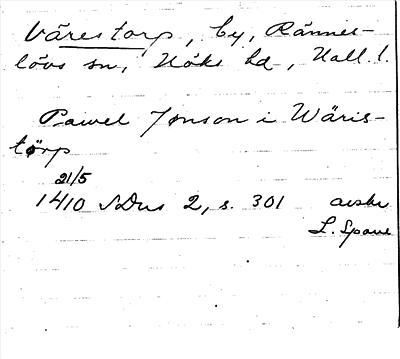 Värestorp, by, Rännes-
lövs sn, Höks hd, Hall. l.
Pawel Jonson i Wäris-
törp
21/5
1410 SDns 2, s. 301 avskr
L. Spove